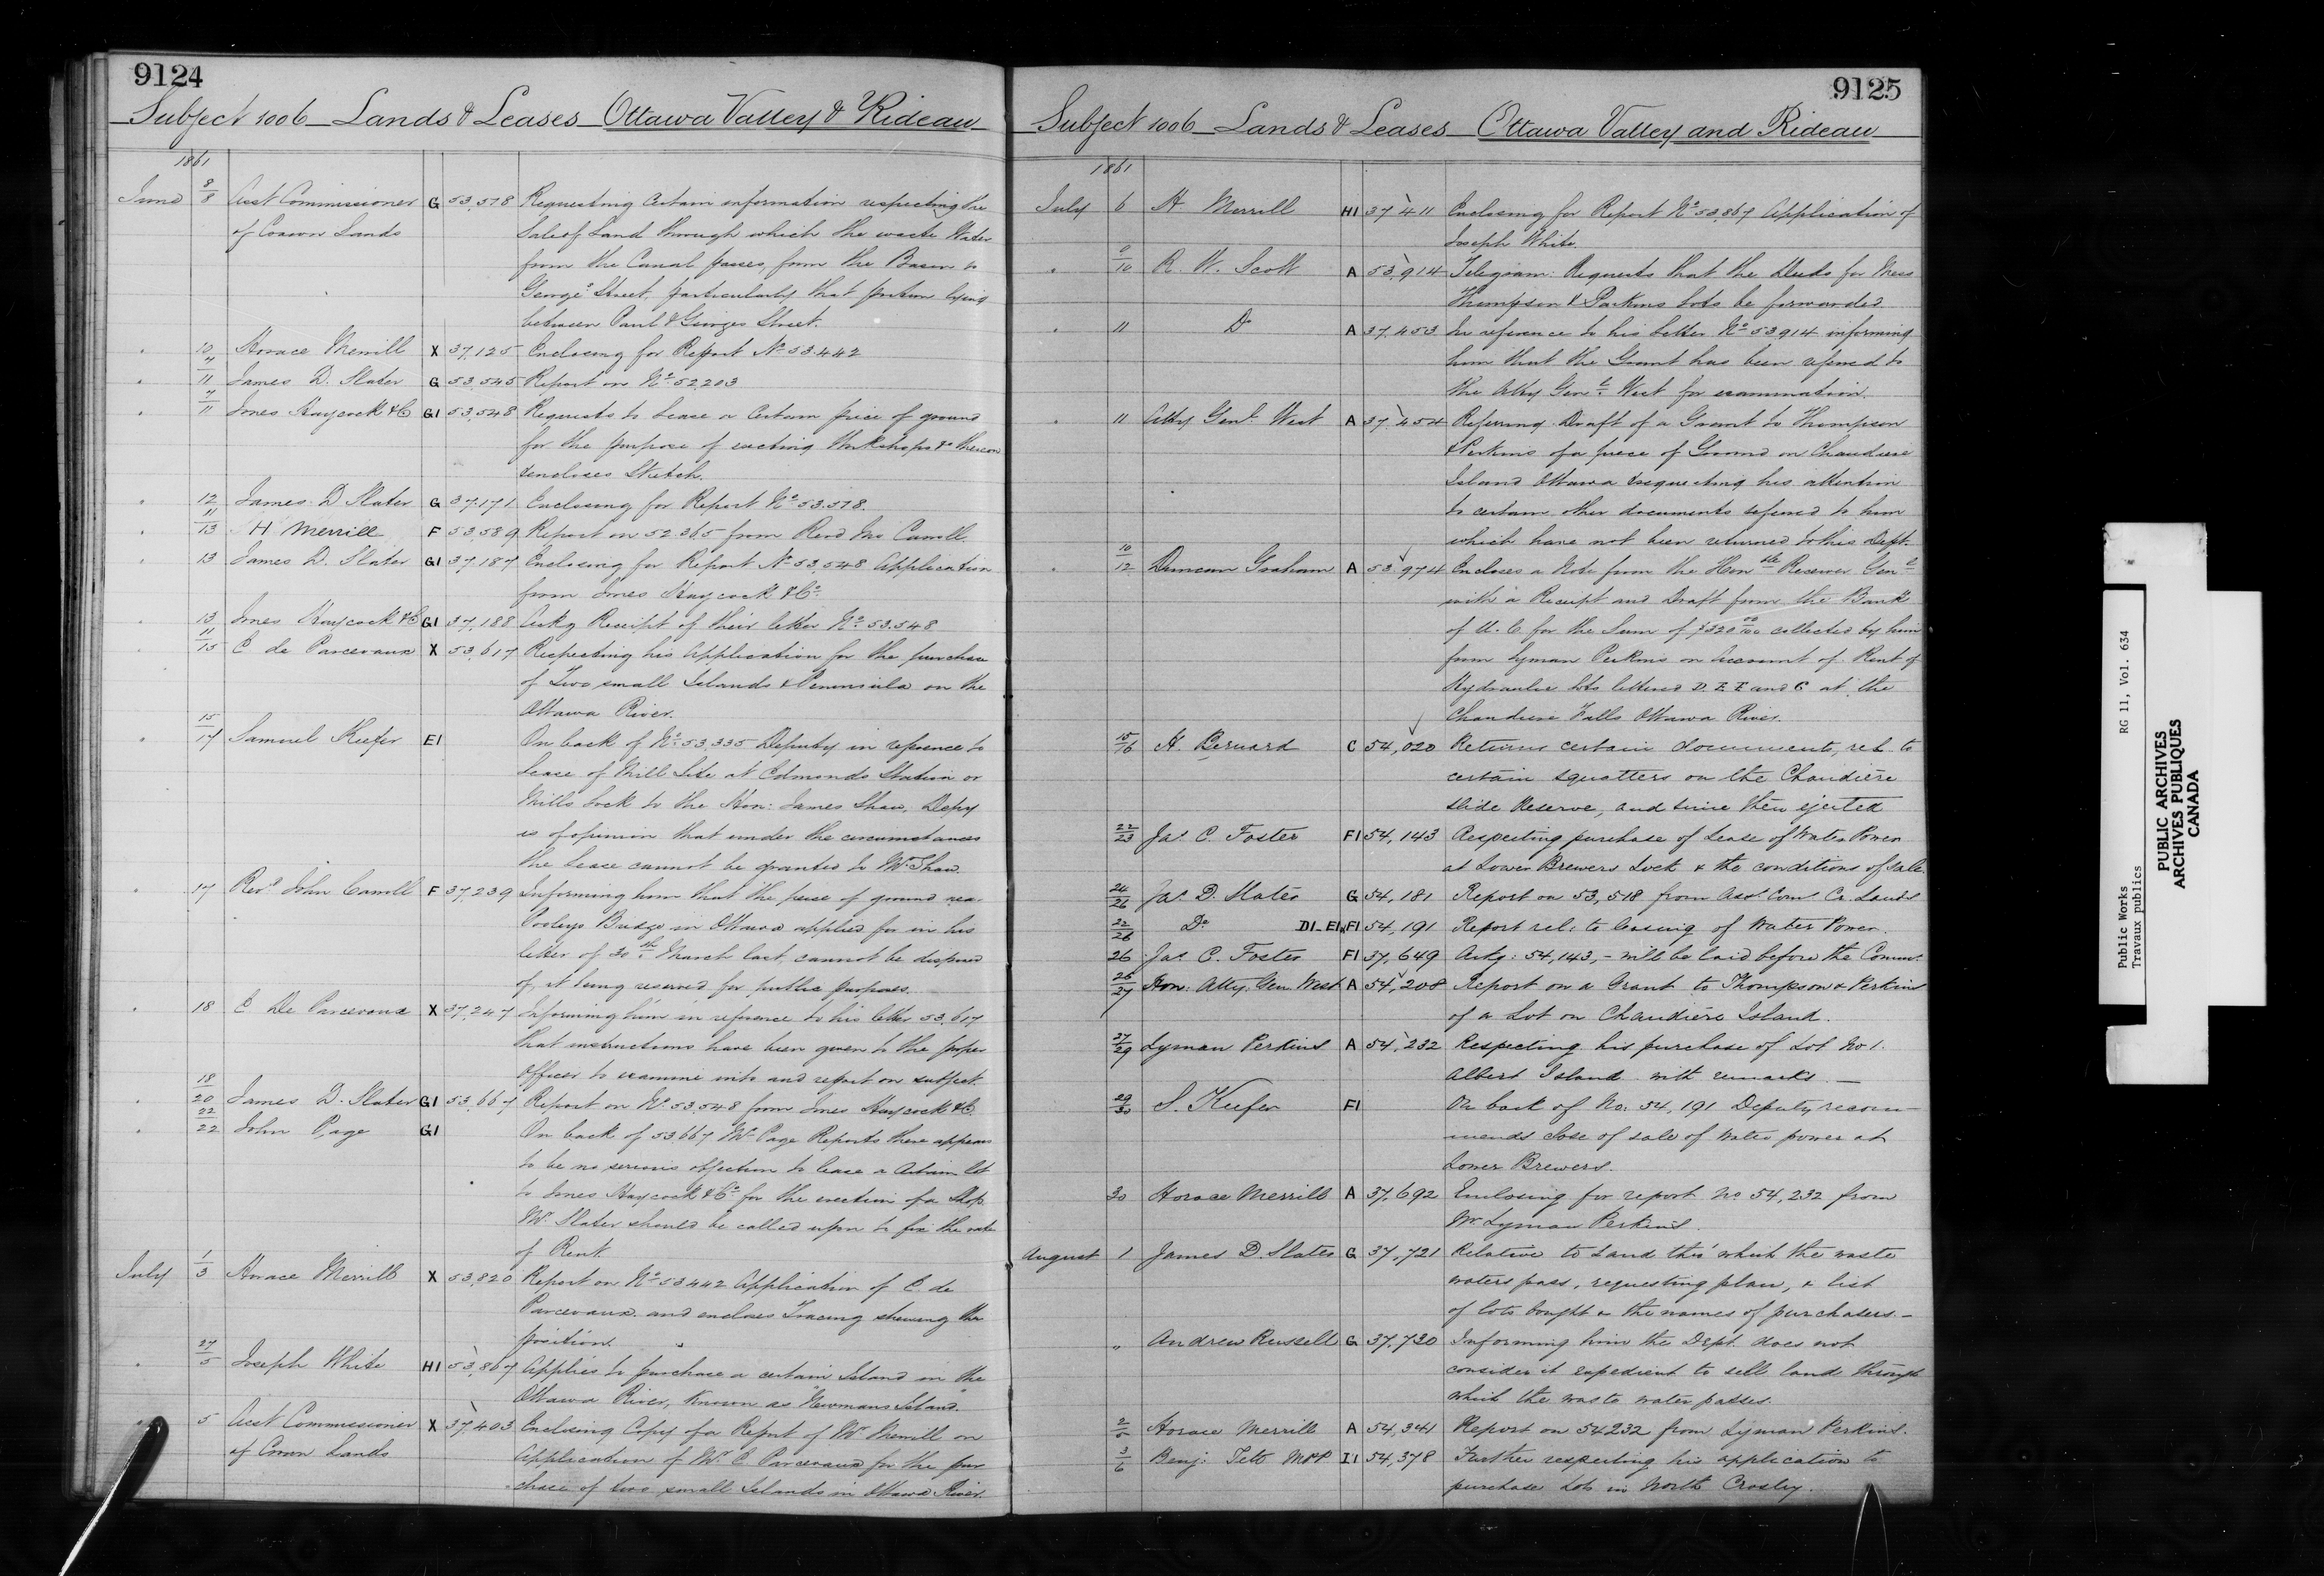 9124
Subject 1006 Lands & Leases Ottawa Valley & Rideau
1861
June 8/8 Asst Commissioner G 53,518 Requesting certain information respecting the
of Crown Lands Sale of Land through which the waste Water
from the Canal passes, from the Basin to
George Street, particularly that portion lying
between Paul & Georges Street.
" 10 Horace Merrill X 37,125 Enclosing for Report No 53.442
" 4/11 James D. Slater G 53,545 Report on No 52203
" 7/11 Jones Haycock & Co G1 53,548 Requests to Lease a certain piece of ground
for the purpose of erecting Workshops &c thereon
& encloses Sketch.
" 12 James D Slater G 37,171 Enclosing for Report No 53.518.
" 11/13 H Merrill F 53,589 Report on 52365 from Revd Jno Carroll.
" 13 James D. Slater G1 37,187 Enclosing for Report No 53,548 Application
from Jones Haycock & Co.
" 13 Jones Haycock & Co G1 37,188 Ackg Receipt of their letter No 53.548
" 11/15 C de Parcevaux X 53,617 Respecting his Application for the purchase
of Two small Islands & Peninsula on the
Ottawa River.
" 15/17 Samuel Keefer E1 On back of No 53,335 Deputy in reference to
Lease of Mill Site at Edmonds Station or
Mills Lock to the Hon: James Shaw. Depy
is of opinion that under the circumstances
the Lease cannot be granted to Mr Shaw.
" 17 Revd John Carroll F 37,239 Informing him that the piece of ground near
Pooleys Bridge in Ottawa applied for in his
letter of 30th March last, cannot be disposed
of, it being reserved for public purposes.
" 18 C De Parcevaux X 37,247 Informing him in reference to his letter 53,617
that instructions have been given to the proper
officer to examine into and report on subject.
" 18/20 James D. Slater G1 53,667 Report on No 53,548 from Jones Haycock & Co.
" 22/22 John Page G1 On back of 53667 Mr Page Reports there appears
to be no serious objection to lease a certain lot
to Jones Haycock & Co for the erection of a Shop.
Mr Slater should be called upon to fix the rate
of Rent.
July 1/3 Horace Merrill X 53,820 Report on No 53442 Application of C. de
Parcevaux and encloses Tracing shewing the
position.
" 27/5 Joseph White H1 53,867 Applies to purchase a certain Island in the
Ottawa River, known as "Newmans Island."
" 5 Asst Commissioner X 37,403 Enclosing Copy of a Report of Mr Merrill on
of Crown Lands Application of Mr C Parcevaux for the pur
chase of two small Islands in Ottawa River.
9125
Subject 1006 Lands & Leases Ottawa Valley and Rideau
1861
July 6 H. Merrill H1 37,411 Enclosing for Report No 53,867 Application of
Joseph White.
" /10 R. W. Scott A 53,914 Telegram: Requests that the Deeds for Messrs
Thompson & Perkins Lots be forwarded
" 11 Do A 37,453 In reference to his letter No 53914 informing
him that the Grant has been referred to
the Atty Genl West for examination.
" 11 Atty Genl West A 37,454 Referring Draft of a Grant to Thompson
& Perkins of a piece of Ground on Chaudiere
Island Ottawa & requesting his attention
to certain other documents referred to him
which have not been returned to this Dept.
" 10/12 Duncan Graham A 53,974 Encloses a Note from the Honble Receiver Genl
with a Receipt and Draft from the Bank
of U. C. for the Sum of $320 00/100 collected by him
from Lyman Perkins on account of Rent of
Hydraulic Lots lettered D. E F and G at the
Chaudiere Falls Ottawa River.
15/16 H. Bernard C 54,020 Returns certain documents, rel. to
certain squatters on the Chaudière
slide Reserve, and since then ejected
22/23 Jas. C. Foster F1 54,143 Respecting purchase of Lease of Water Power
at Lower Brewers Lock & the conditions of sale.
24/26 Jas. D. Slater G 54,181 Report on 53,518 from Asst. Com. Cr. Lands
22/26 Do D1_E1_F1 54,191 Report rel: to leasing of Water Power.
26 Jas. C. Foster F1 37,649 Ackg: 54,143, - will be laid before the Commr.
26/27 Hon: Atty: Gen West A 54,208 Report on a Grant to Thompson & Perkins
of a Lot on Chaudière Island.
27/29 Lyman Perkins A 54,232 Respecting his purchase of Lot No 1.
Albert Island with remarks. _
29/30 S. Keefer F1 On back of No: 54,191 Deputy recom-
mends sale of water power at
Lower Brewers.
30 Horace Merrill A 37,692 Enclosing for report No 54,232 from
Mr Lyman Perkins.
August 1 James D. Slater G 37,721 Relative to Land thro' which the waste
waters pass, requesting plan, & list
of lots bought & the names of purchasers. _
" Andrew Russell G 37,730 Informing him the Dept. does not
consider it expedient to sell land through
which the waste water passes.
2/5 Horace Merrill A 54,341 Report on 54232 from Lyman Perkins.
3/6 Benj: Tett MPP I1 54,378 Further respecting his application to
purchase Lots in North Crosby.
Public Works RG 11, Vol. 634
Travaux publics
PUBLIC ARCHIVES
ARCHIVES PUBLIQUES
CANADA